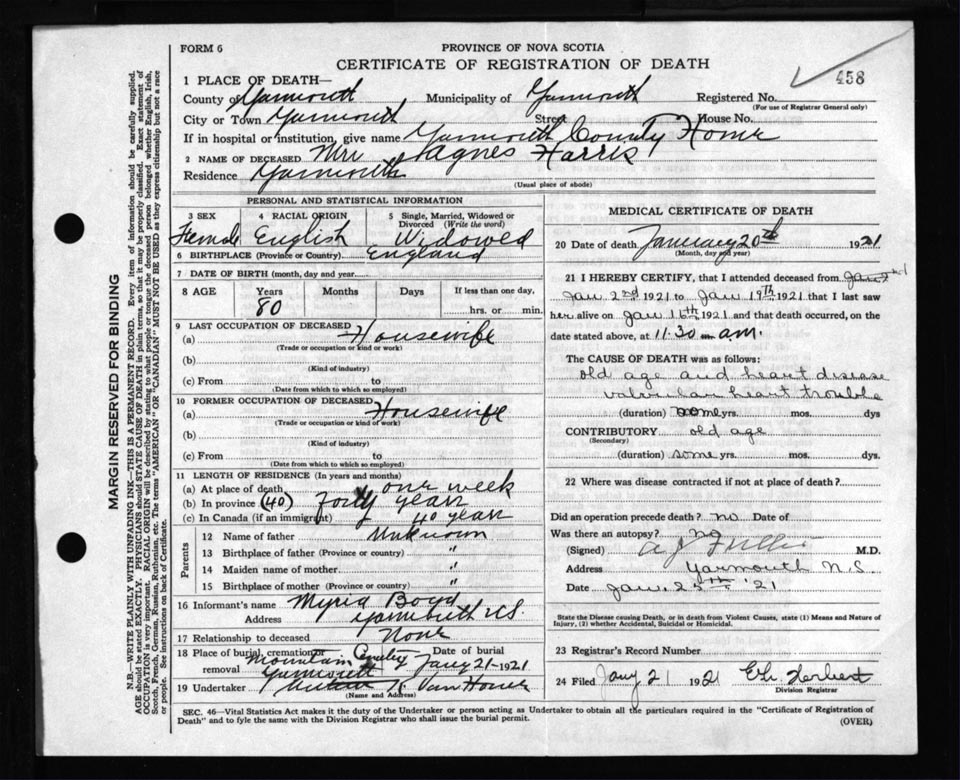 FORM 6
PROVINCE OF NOVA SCOTIA
CERTIFICATE OF REGISTRATION OF DEATH
458
1 PLACE OF DEATH—
County of Yarmouth Municipality of Yarmouth Registered No.
(For use of Registrar General only)
City or Town Yarmouth Street House No.
If in hospital or institution, give name Yarmouth County Home
2 NAME OF DECEASED Agnes Harris
Residence Yarmouth
(Usual place of abode)
PERSONAL AND STATISTICAL INFORMATION
3 SEX Female
4 RACIAL ORIGIN English
5 Single, Married, Widowed or Divorced (Write the word) Widowed
6 BIRTHPLACE (Province or Country) England
7 DATE OF BIRTH (month, day and year)
8 AGE Years Months Days If less than one day,
80 hrs. or min.
9 LAST OCCUPATION OF DECEASED
(a) Housewife
(Trade or occupation or kind of work)
(b)
(Kind of industry)
(c) From to
(Date from which to which so employed)
10 FORMER OCCUPATION OF DECEASED
(a) Housewife
(Trade or occupation or kind of work)
(b)
(Kind of industry)
(c) From to
(Date from which to which so employed)
11 LENGTH OF RESIDENCE (In years and months)
(a) At place of death one week
(b) In province (40) forty years
(c) In Canada (if an immigrant) 40 years
Parents
12 Name of father Unknown
13 Birthplace of father (Province or country) "
14 Maiden name of mother "
15 Birthplace of mother (Province or country) "
16 Informant's name Boyd
Address Yarmouth N.S.
17 Relationship to deceased None
18 Place of burial, cremation or removal Mountain Cemetery Yarmouth Date of burial Jany 21 1921
19 Undertaker Van Horne
(Name and Address)
MEDICAL CERTIFICATE OF DEATH
20 Date of death January 20th 1921
(Month, day and year)
21 I HEREBY CERTIFY, that I attended deceased from
Jan 2nd 1921 to Jan 19th 1921 that I last saw
her alive on Jan 16th 1921 and that death occurred, on the
date stated above, at 11.30 a.m.
The CAUSE OF DEATH was as follows:
old age and heart disease
valvular heart trouble
(duration) some yrs. mos. dys
CONTRIBUTORY old age
(Secondary)
(duration) some yrs. mos. dys.
22 Where was disease contracted if not at place of death?
Did an operation precede death? no Date of
Was there an autopsy? no
(Signed) M.D.
Address Yarmouth N.S.
Date Jan. '21
State the Disease causing Death, or in death from Violent Causes, state (1) Means and Nature of
Injury, (2) whether Accidental, Suicidal or Homicidal.
23 Registrar's Record Number
24 Filed Jany 21 1921 Herbert
Division Registrar
SEC. 46—Vital Statistics Act makes it the duty of the Undertaker or person acting as Undertaker to obtain all the particulars required in the "Certificate of Registration of
Death" and to fyle the same with the Division Registrar who shall issue the burial permit. (OVER)
MARGIN RESERVED FOR BINDING
N.B.—WRITE PLAINLY WITH UNFADING INK—THIS IS A PERMANENT RECORD. Every item of information should be carefully supplied.
AGE should be stated EXACTLY. PHYSICIANS should STATE CAUSE OF DEATH in plain terms, so that it may be properly classified. Exact statement of
OCCUPATION is very important. RACIAL ORIGIN will be described by stating to what people or tongue the deceased person belonged whether English, Irish,
Scotch, French, German, Russian, Ruthenian, etc. The terms "AMERICAN" OR "CANADIAN" MUST NOT BE USED as they express citizenship but not a race
or people. See instructions on back of Certificate.